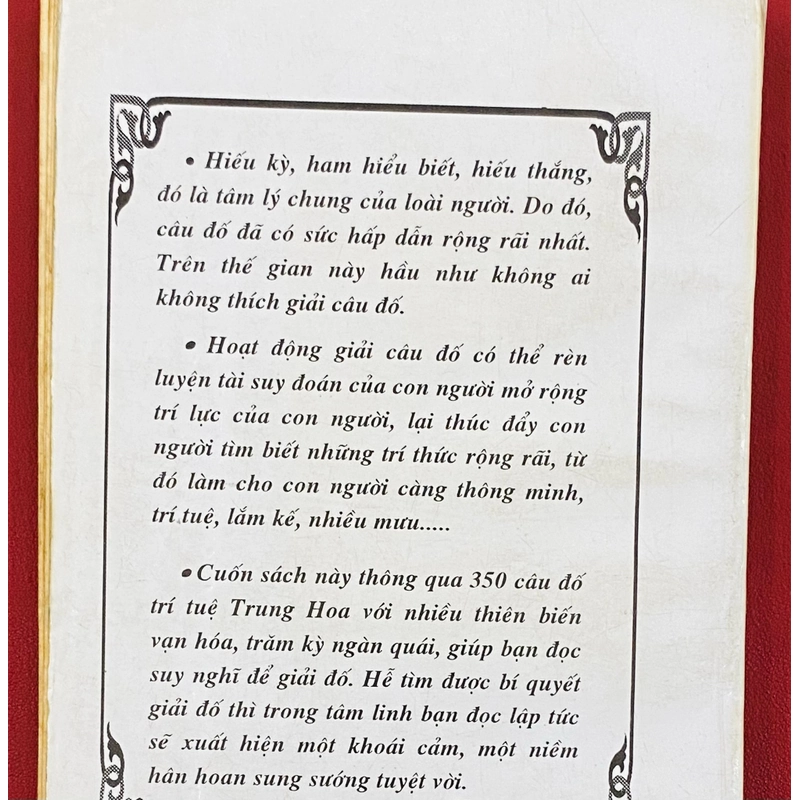 • Hiếu kỳ, ham hiểu biết, hiếu thắng,
đó là tâm lý chung của loài người. Do đó,
câu đố đã có sức hấp dẫn rộng rãi nhất.
Trên thế gian này hầu như không ai
không thích giải câu đố.
• Hoạt động giải câu đố có thể rèn
luyện tài suy đoán của con người mở rộng
trí lực của con người, lại thúc đẩy con
người tìm biết những trí thức rộng rãi, từ
đó làm cho con người càng thông minh,
trí tuệ, lắm kế, nhiều mưu.....
• Cuốn sách này thông qua 350 câu đố
trí tuệ Trung Hoa với nhiều thiên biến
vạn hóa, trăm kỳ ngàn quái, giúp bạn đọc
suy nghĩ để giải đố. Hễ tìm được bí quyết
giải đố thì trong tâm linh bạn đọc lập tức
sẽ xuất hiện một khoái cảm, một niềm
hân hoan sung sướng tuyệt vời.